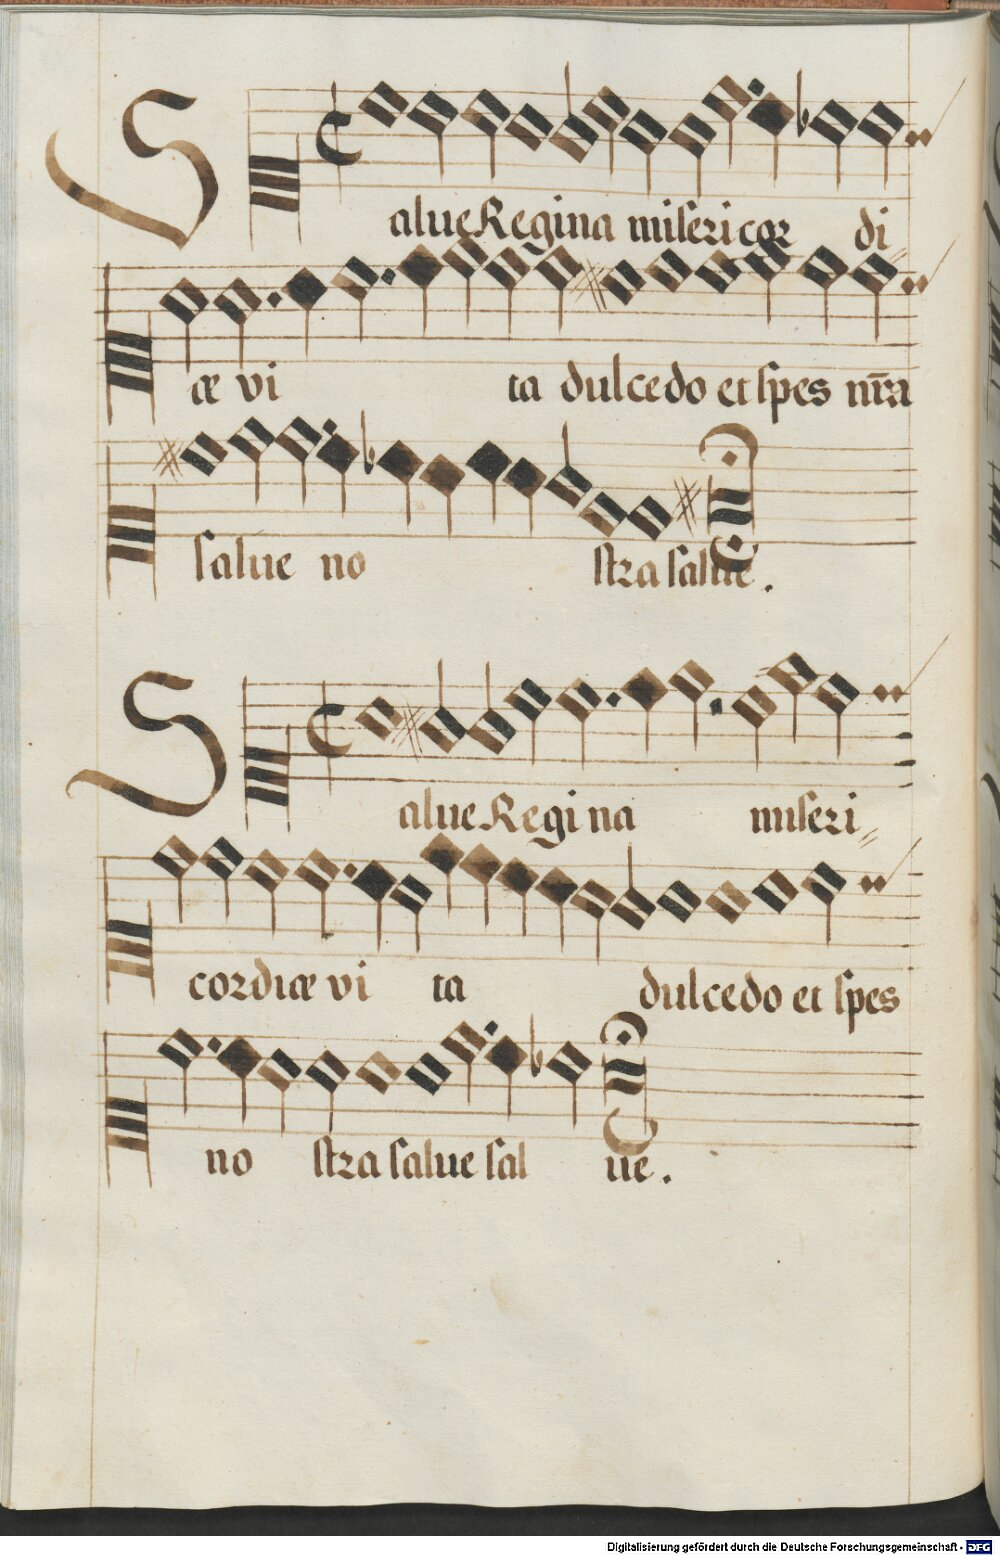 Salue Regina misericor di
æ vi ta dulcedo et spes nr̄a
salue no stra salue.
Salue Regina miseri
cordiæ vi ta dulcedo et spes
no stra salue sal ue.
Digitalisierung gefördert durch die Deutsche Forschungsgemeinschaft - DFG